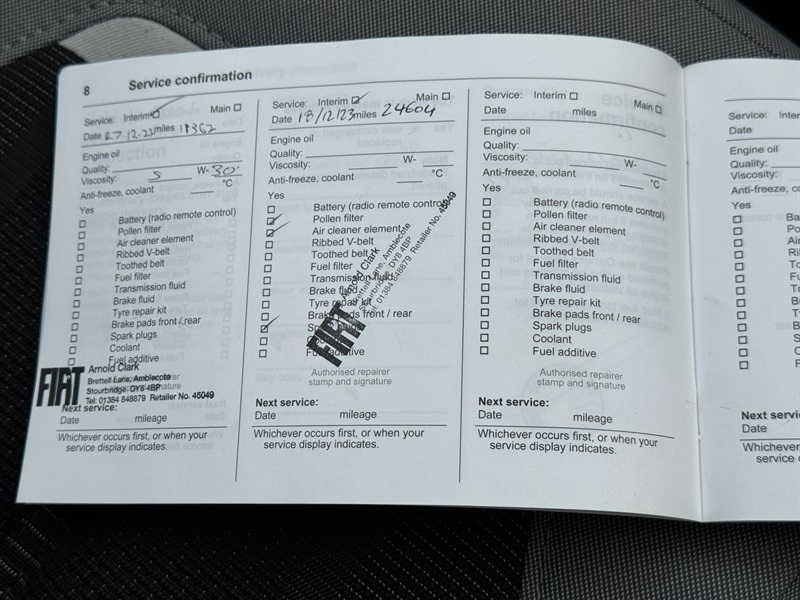 8 Service confirmation
Service: Interim Main
Date 27-12-23 miles 18362
Engine oil
Quality:
Viscosity: 5 W- 30
Anti-freeze, coolant °C
Yes
Battery (radio remote control)
Pollen filter
Air cleaner element
Ribbed V-belt
Toothed belt
Fuel filter
Transmission fluid
Brake fluid
Tyre repair kit
Brake pads front / rear
Spark plugs
Coolant
Fuel additive
FIAT
Arnold Clark
Brettell Lane, Amblecote
Stourbridge. DY8 4BP
Tel: 01384 848879 Retailer No. 45049
Next service:
Date mileage
Whichever occurs first, or when your
service display indicates.
Service: Interim Main
Date 18/12/23 miles 24604
Engine oil
Quality:
Viscosity: W-
Anti-freeze, coolant °C
Yes
Battery (radio remote control)
Pollen filter
Air cleaner element
Ribbed V-belt
Toothed belt
Fuel filter
Transmission fluid
Brake fluid
Tyre repair kit
Brake pads front / rear
Fuel additive
FIAT
Arnold Clark
Brettell Lane, Amblecote
Stourbridge. DY8 4BP
01384 848879 Retailer No. 45049
Authorised repairer
stamp and signature
Next service:
Date mileage
Whichever occurs first, or when your
service display indicates.
Service: Interim Main
Date miles
Engine oil
Quality:
Viscosity: W-
Anti-freeze, coolant °C
Yes
Battery (radio remote control)
Pollen filter
Air cleaner element
Ribbed V-belt
Toothed belt
Fuel filter
Transmission fluid
Brake fluid
Tyre repair kit
Brake pads front / rear
Spark plugs
Coolant
Fuel additive
Authorised repairer
stamp and signature
Next service:
Date mileage
Whichever occurs first, or when your
service display indicates.
Service: Inter
Date
Engine oil
Quality:
Viscosity:
Anti-freeze, co
Yes
Ba
Po
Ai
Ri
To
F
T
B
T
B
S
C
F
Next servic
Date
Whichever
service d